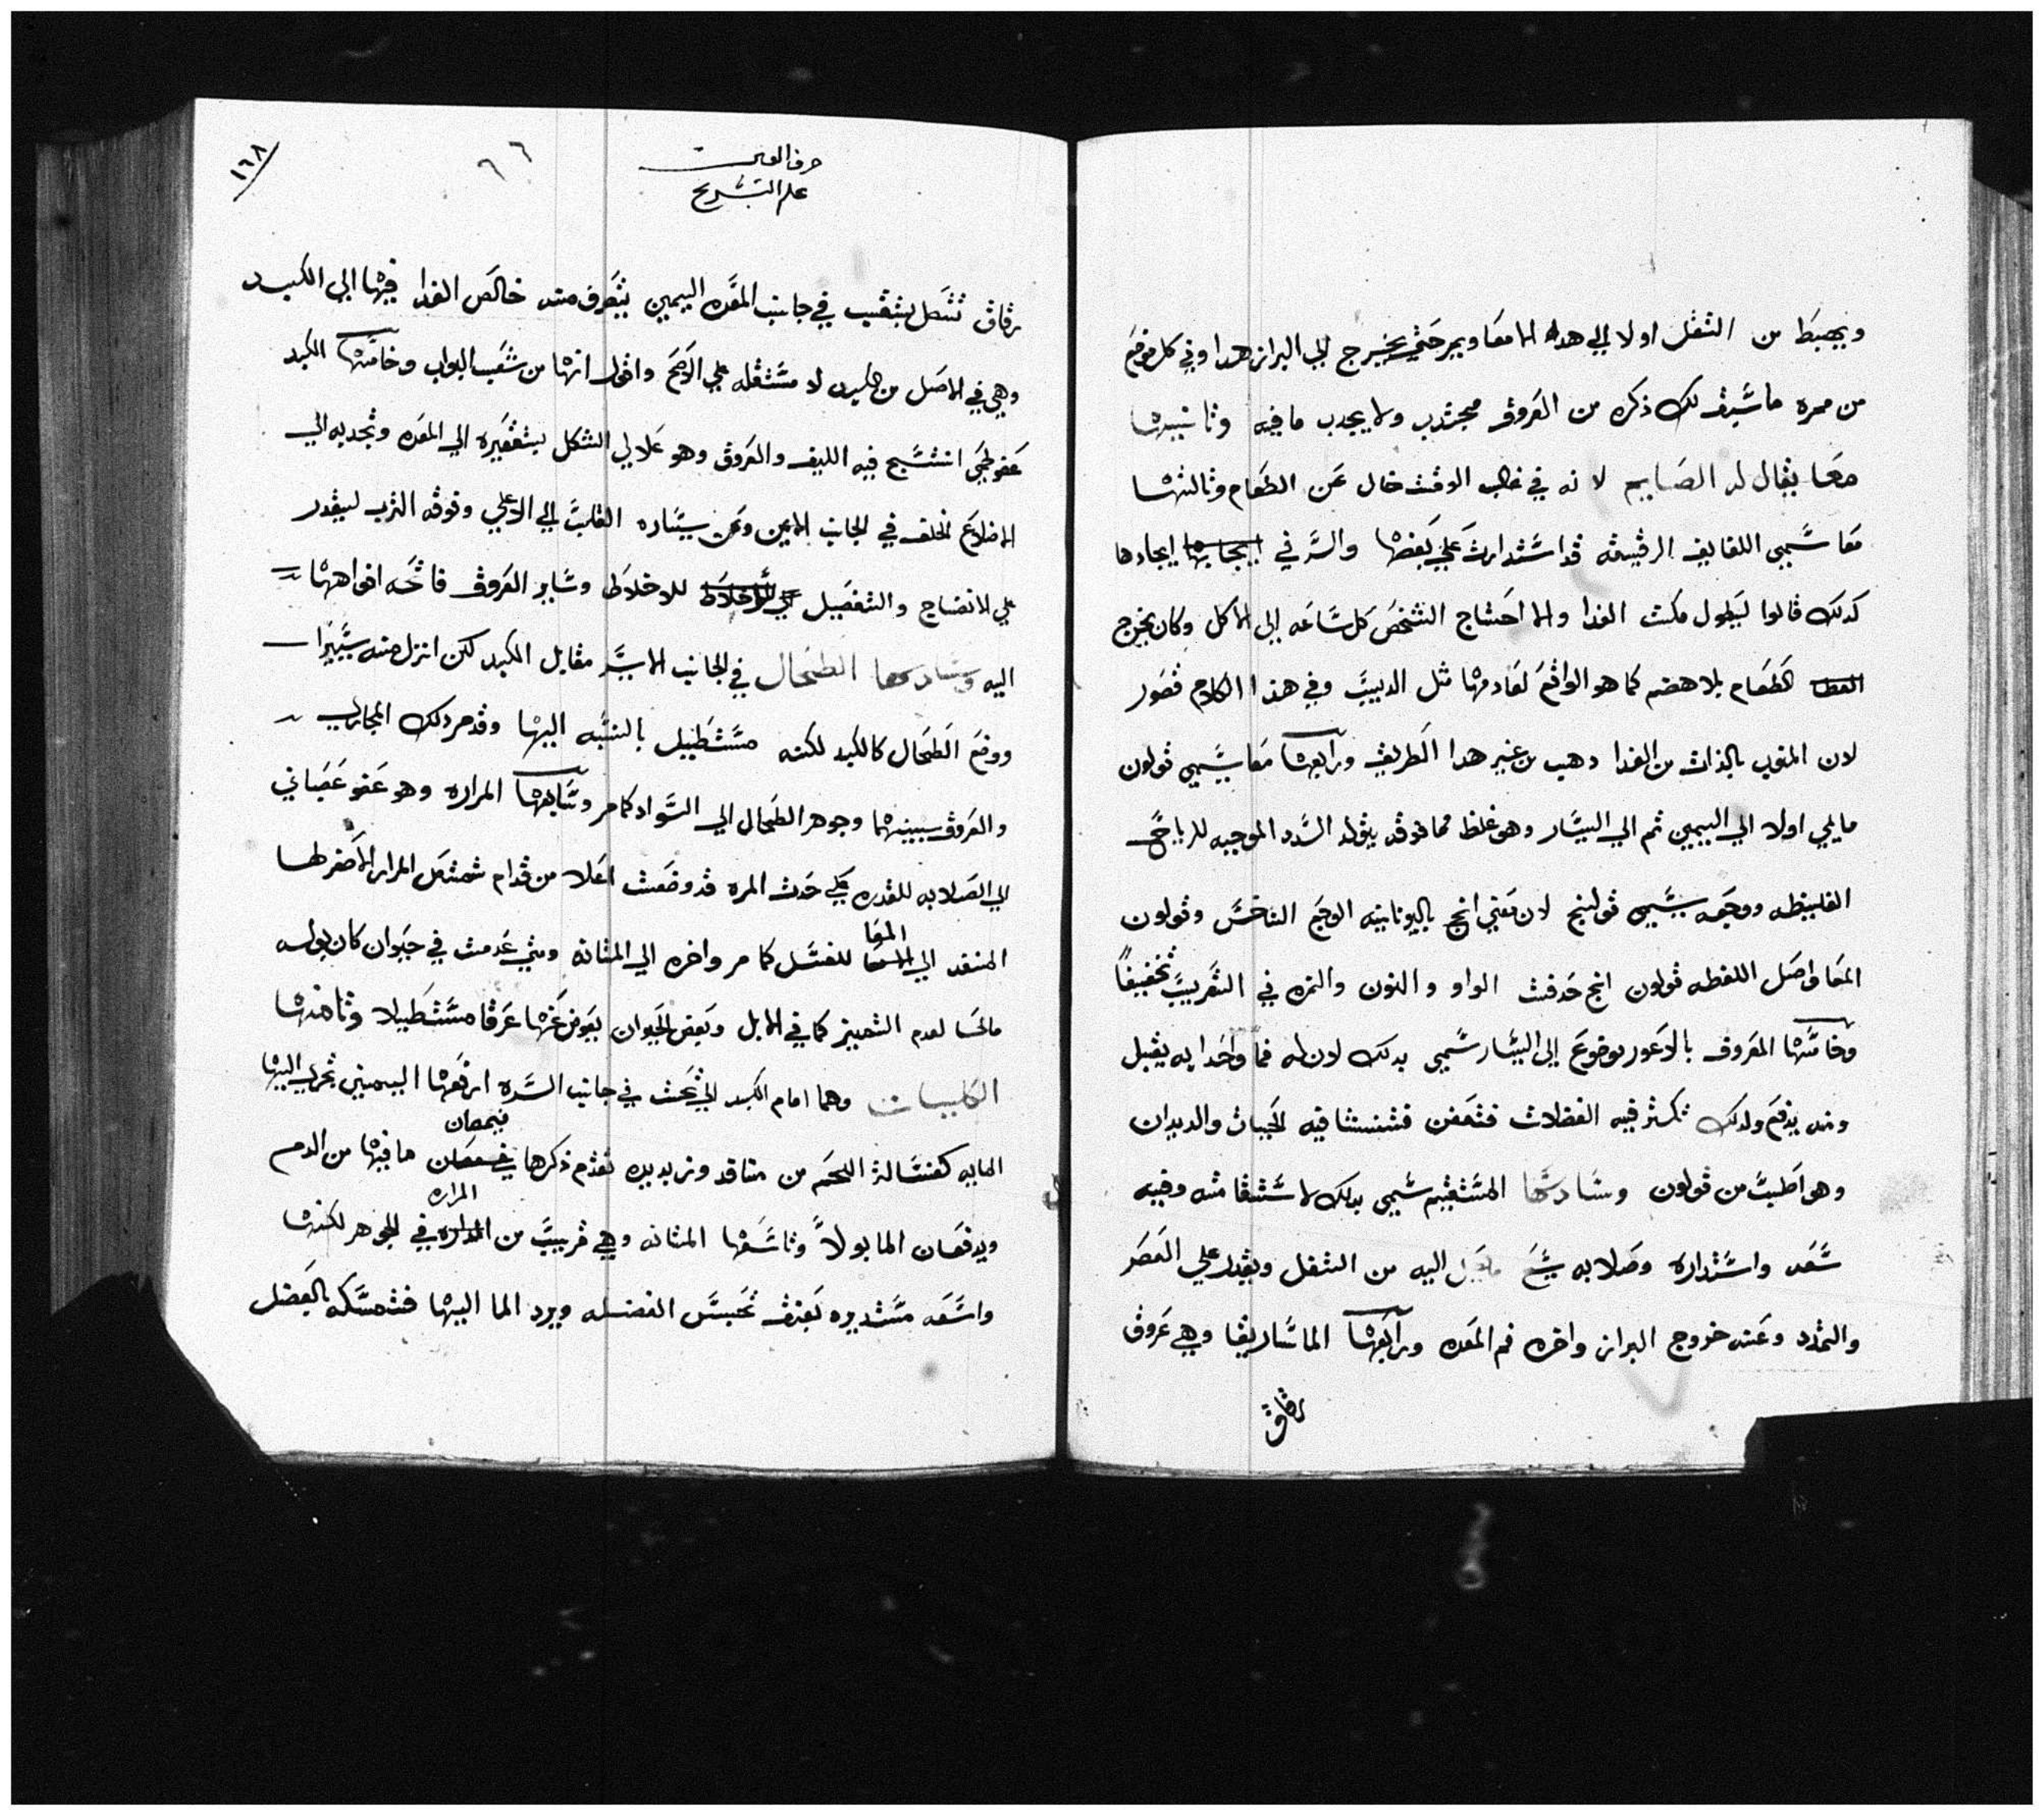 ويهبط من الثفل اولا الي هده الامعا ويمر حتي يخرج الي البراز هدا وفي كل موضع
من ممره ما سيف لك ذكره من العروق مجتدب ولا يجدب ما فيه وثانييها
معا يقال له الصايم لانه في غالب الوقت خال عن الطعام وثالثها
معا سمي اللفايف الرقيقه قد استدارت علي بعضها والسر في ايجادها
كدلك قالوا ليطول مكث الغدا والا احتاج الشخص كل ساعه الي الاكل وكان يخرج
الطعام بلا هضم كما هو الواقع لعادمها مثل الديب وفي هذا الكلام قصور
لان المنوب بالذات من الغدا دهب من غير هدا الطريق ورابعها معا يسمي قولون
مايلي اولا الي اليمين ثم الي اليسار وهو غلظ مما فوقه يتولد السدد الموجبه للرياح
الغليظه ووجعه يسمي قولنج لان معني انج باليونانيه الوجع الناخس وقولون
المعا واصل اللفظه قولون انج حدفت الواو والنون والهمزه في التعريب تخفيفاً
وخامسها المعروف بالاعور موضوع الي اليسار سمي بدلك لان له فما واحدا به يقبل
ومنه يدفع ولدلك تكثر فيه الفضلات فتعفن فتنشا فيه الحيات والديدان
وهو اصلب من قولون وسادسها المستقيم سمي بدلك لاستقامته وفيه
سعه واستداره وصلابه اليه من الثفل ويقدر علي العصر
والتمدد وعنه خروج البراز واخره فم المعده ورابعها الماساريقا وهي عروق
رقاق
١٦٨
٦٦
حرف العين
علم التشريح
رقاق تتصل بثقب في جانب المعده اليمين يتصرف منه خالص الغدا فيها الي الكبد
وهي في الاصل من الكبد لا مستقله علي الاصح واقول انها من شعب البواب وخامسها الكبد
عضو لحمي انتسج فيه الليف والعروق وهو هلالي الشكل بتقعيره الي المعده وتحدبه الي
الاضلاع الخلف في الجانب الايمن وعن يساره القلب الي الاعلي وفوقه الثرب ليقدر
علي الانضاج والتفصيل للاخلاط وساير العروق فاتحه افواهها
اليه وسادسها الطحال في الجانب الايسر مقابل الكبد لكن انزل منه يسيرا
ووضع الطحال كالكبد لكنه مستطيل بالنسبه اليها وقد مر دلك المجاري
والعروق بينهما وجوهر الطحال الي السواد كما مر وسابعها المراره وهو عضو عصباني
الي الصلابه للقدره علي حدث المره قد وضعت اعلا من قدام تمتص المرار الاصفر لها
المنفد الي المعا للغسل كما مر واخره الي المثانه ومتي عدمت في حيوان كان بوله
مالحا لعدم التمييز كما في الابل وبعض الحيوان يعوض عنها عرقا مستطيلا وثامنها
الكليتان وهما امام الكبد الي تحت في جانب السره ارفعها اليميني تجري اليها
المايه كغسالة اللحم من منافد وتربديده تقدم ذكرها فيمصان ما فيها من الدم
ويدفعان الما بولاً وتاسعها المثانه وهي قريب من المراره في الجوهر لكنها
واسعه مستديره بعنق تحبس الفضله ويرد الما اليها فتمسكه بالعضل